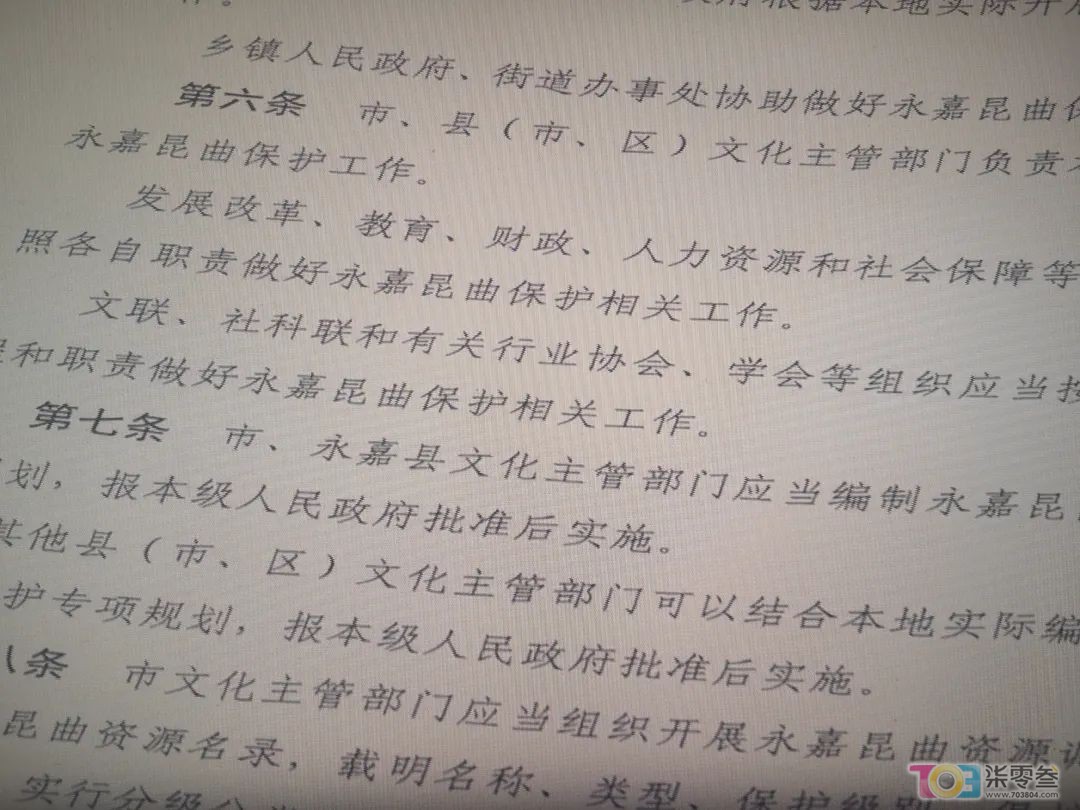 根据本地实际开
乡镇人民政府、街道办事处协助做好永嘉昆曲
第六条 市、县（市、区）文化主管部门负责
永嘉昆曲保护工作。
发展改革、教育、财政、人力资源和社会保障等
照各自职责做好永嘉昆曲保护相关工作。
文联、社科联和有关行业协会、学会等组织应当按
和职责做好永嘉昆曲保护相关工作。
第七条 市、永嘉县文化主管部门应当编制永嘉昆
划，报本级人民政府批准后实施。
其他县（市、区）文化主管部门可以结合本地实际编
护专项规划，报本级人民政府批准后实施。
条 市文化主管部门应当组织开展永嘉昆曲资源
昆曲资源名录，载明名称、类型、保护级别
实行分级分
703 柒零叁
www.703804.com